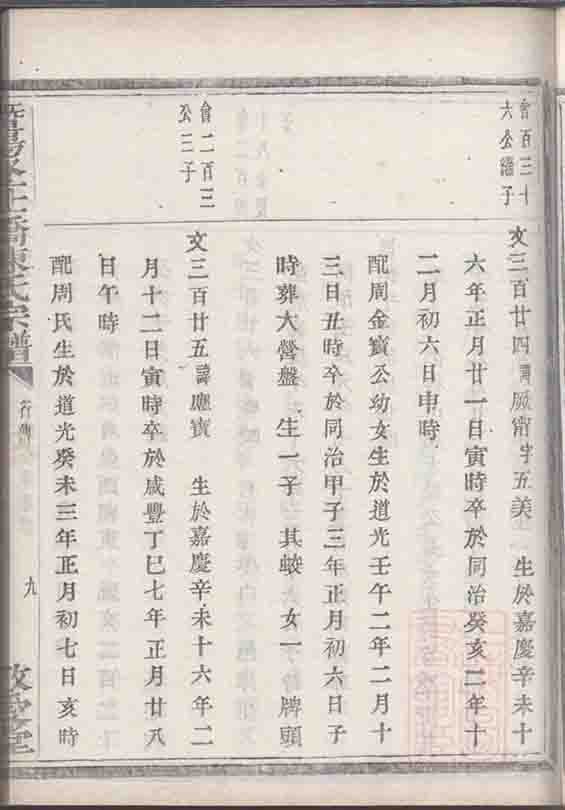 會百三十
六公繼子
文三百廿四諱厥甯字五美 生於嘉慶辛未十
六年正月廿一日寅時卒於同治癸亥二年十
二月初六日申時
配周金寶公幼女生於道光壬午二年二月十
三日丑時卒於同治甲子三年正月初六日子
時葬大營盤 生一子 其蛟 女一子 牌頭
會二百三
公三子
文三百廿五諱應寶 生於嘉慶辛未十六年二
月十二日寅時卒於咸豐丁巳七年正月廿八
日午時
配周氏生於道光癸未三年正月初七日亥時
橋陳氏宗譜
行傳
九